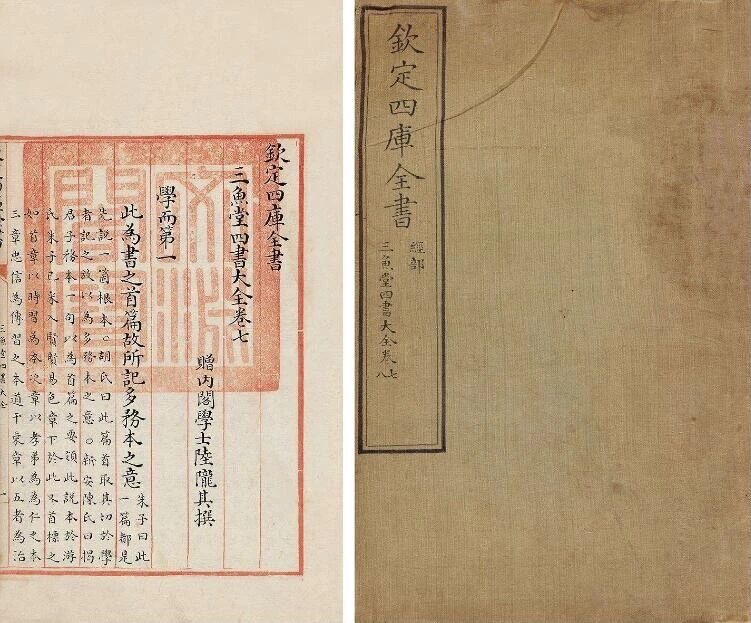 欽定四庫全書
經部
三魚堂四書大全卷七
八
欽定四庫全書
三魚堂四書大全卷七
贈内閣學士陸隴其撰
學而第一
此為書之首篇故所記多務本之意
朱子曰此
一篇都是
先說一箇根本。胡氏曰此篇首取其切於學
者記之故以為多務本之意。新安陳氏曰揭
君子務本一句以為首篇之要領此說本於游
氏朱子已采入賢賢易色章下於此又首標之
如首章以時習為本次章以孝弟為為仁之本
三章忠信為傳習之本道千乘章以五者為治
三魚堂四書大全